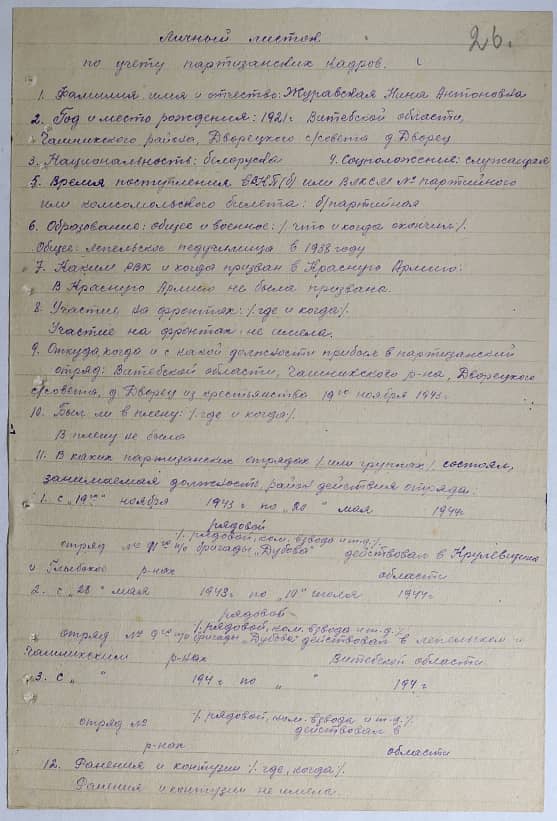 26.
Личный листок
по учету партизанских кадров.
1. Фамилия имя и отчество: Журавская Нина Антоновна
2. Год и место рождения: 1921 г Витебской области,
Чашникского района, Дворецкого с/совета д Дворец
3. Национальность: белоруска 4. Соцположение: служащая
5. Время поступления в ВКП(б) или ВЛКСМ № партийного
или комсомольского билета: б/партийная
6. Образование: общее и военное: /. что и когда окончил /.
Общее: Лепельское педучилище в 1938 году
7. Каким РВК и когда призван в Красную Армию:
В Красную Армию не была призвана.
8. Участие на фронтах: /. где и когда /.
Участие на фронтах не имела.
9. Откуда, когда и с какой должности прибыл в партизанский
отряд: Витебской области, Чашникского р-на, Дворецкого
с/совета, д Дворец из крестьянство 19го ноября 1943 г.
10. Был ли в плену: /. где и когда /.
В плену не была
11. В каких партизанских отрядах /. или группах /. состоял,
занимаемая должность, район действия отряда.
1. с „19го“ ноября 1943 г по „20“ мая 1944 г
рядовой
/. рядовой, ком. взвода и т.д. /.
отряд № бригады „Дубова“ действовал в
и р-нах области
2. с „ “ мая 1943 г. по „ “ июля 1944 г
рядовой
/. рядовой, ком. взвода и т.д. /.
отряд № бригады „Дубова“ действовал в Лепельском и
Чашникским р-нах Витебской области.
3. с „ “ 194 г по „ “ 194 г
/. рядовой, ком. взвода и т.д. /.
отряд № действовал в
р-нах области
12. Ранения и контузии /. где, когда /.
Ранения и контузии не имела.